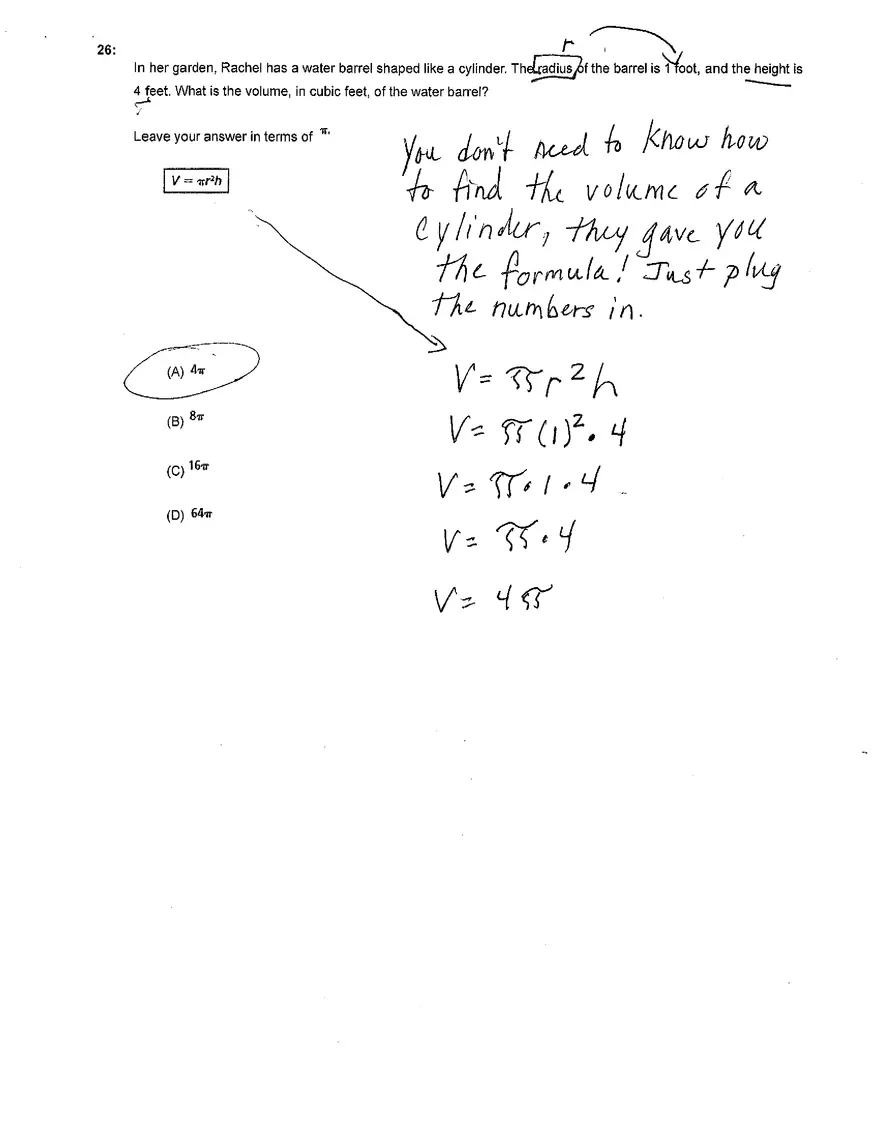 26:
r
In her garden, Rachel has a water barrel shaped like a cylinder. The radius of the barrel is 1 foot, and the height is
4 feet. What is the volume, in cubic feet, of the water barrel?
Leave your answer in terms of π.
V = πr²h
You don't need to know how
to find the volume of a
cylinder, they gave you
the formula! Just plug
the numbers in.
(A) 4π
(B) 8π
(C) 16π
(D) 64π
V = πr²h
V = π(1)². 4
V = π · 1 · 4
V = π · 4
V = 4π